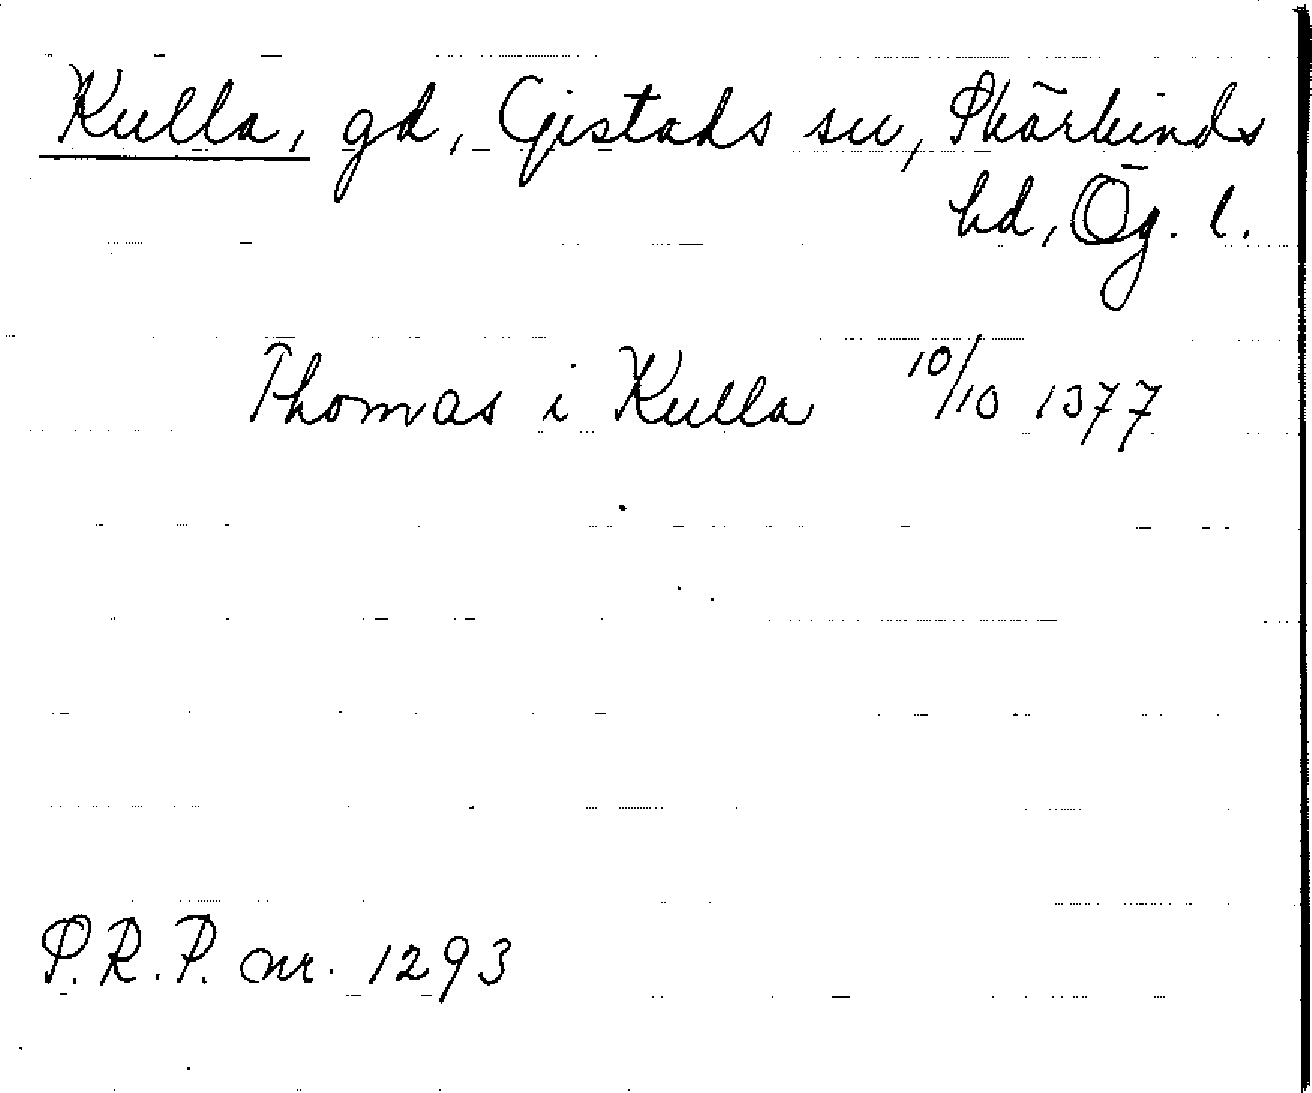 Kulla, gd, Gistads sn, Skärkinds
hd, Ög. l.
Thomas i Kulla 10/10 1377
S.R.P. nr. 1293